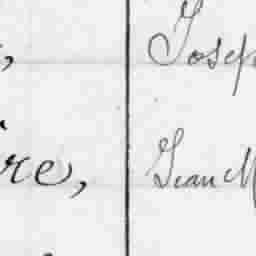 , Josep
re, Jean M